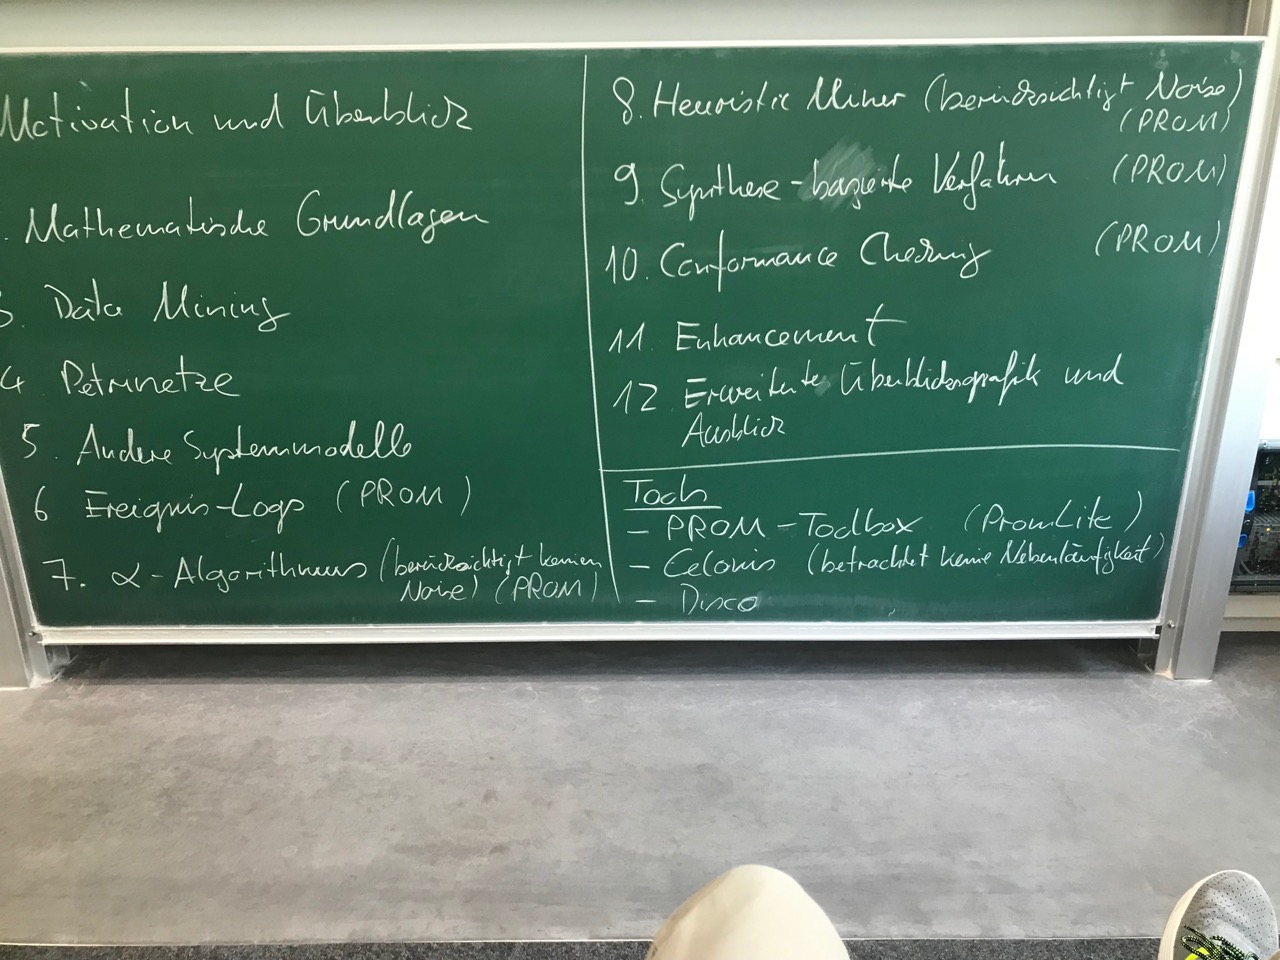 Motivation und Überblick
. Mathematische Grundlagen
3. Data Mining
4 Petrinetze
5. Andere Systemmodelle
6 Ereignis-Logs (PROM)
7. α-Algorithmus (berücksichtigt keinen
Noise) (PROM)
8. Heuristic Miner (berücksichtigt Noise)
(PROM)
9. Synthese-basierte Verfahren (PROM)
10. Conformance Checking (PROM)
11. Enhancement
12 Erweiterte Überblicksgrafik und
Ausblick
Tools
- PROM-Toolbox (PromLite)
- Celonis (betrachtet keine Nebenläufigkeit)
- Disco